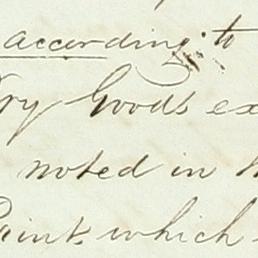 according to
Dry Goods ex
noted in th
Paint, which